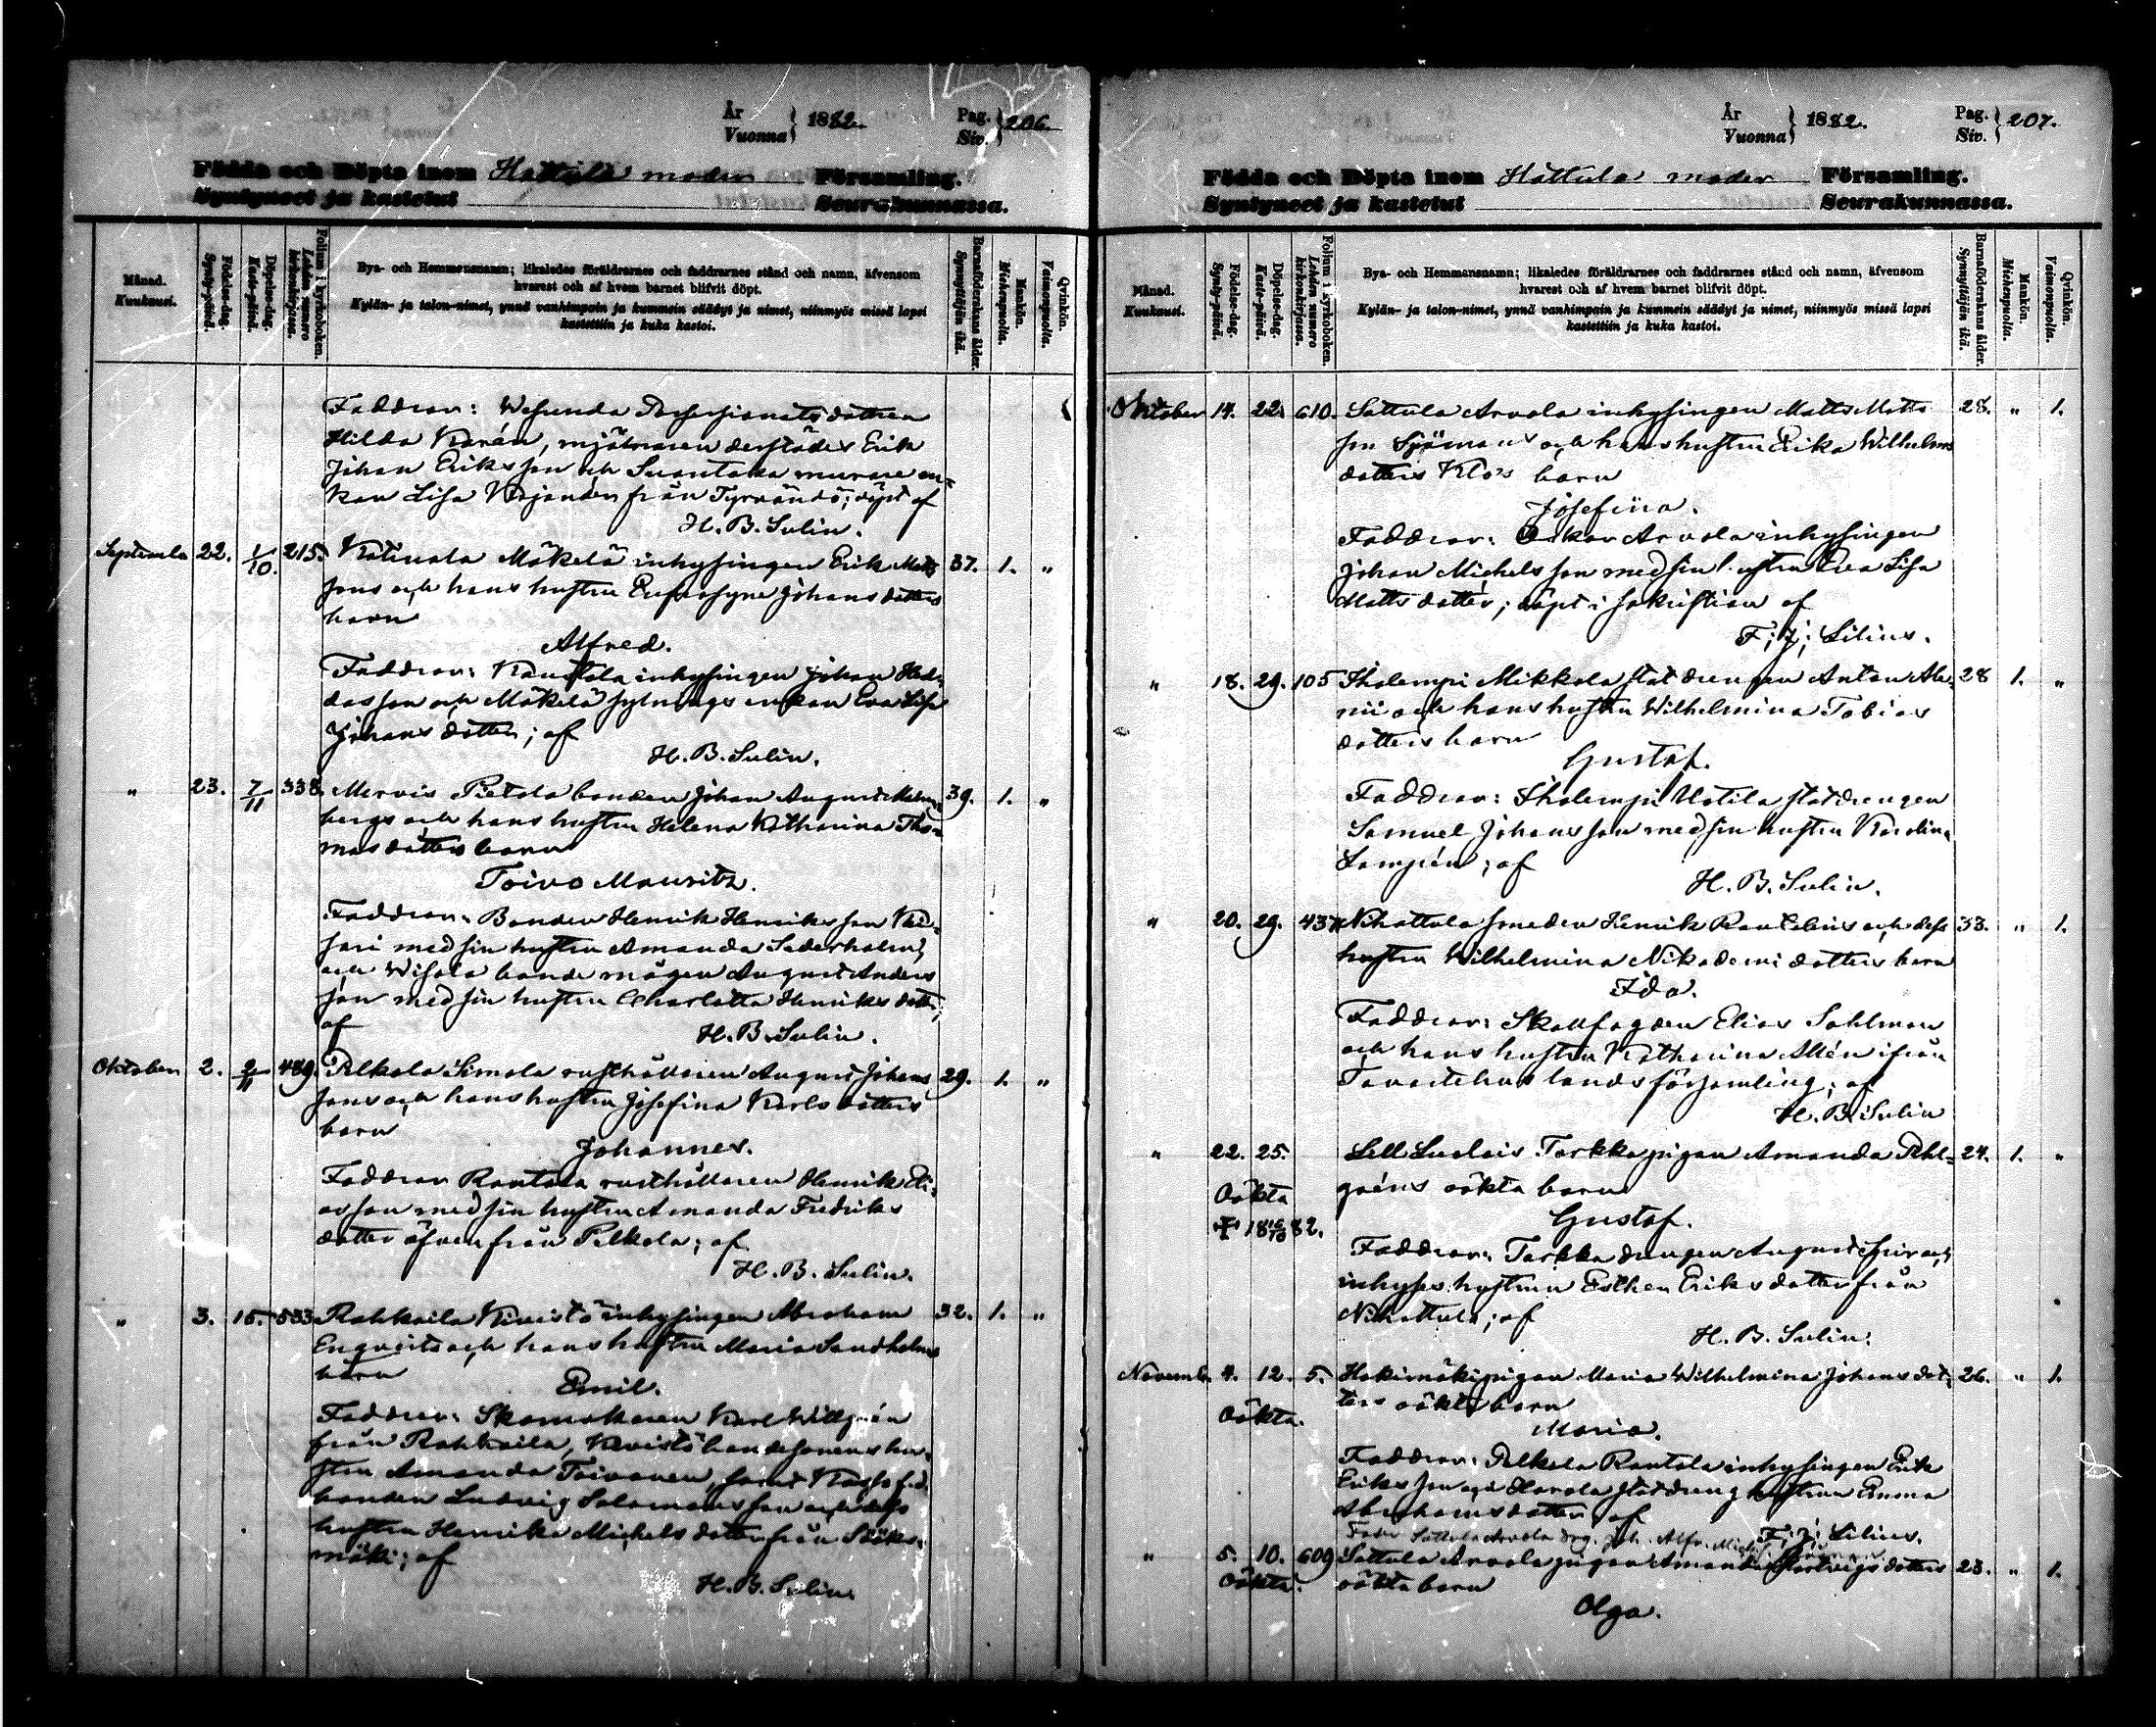 År
Vuonna } 1882. Pag. Siv. } 206.
Födda och Döpta inom Hattula moder Församling.
Syntyneet ja kastetut Seurakunnassa.
Månad. Kuukausi.
Födelse-dag. Synty-päivä.
Döpelse-dag. Kaste-päivä.
Folium i kyrkoboken. Lehden numero kirkonkirjassa.
Bya- och Hemmansnamn; likaledes föräldrarnes och faddrarnes stånd och namn, äfvensom
hvarest och af hvem barnet blifvit döpt.
Kylän- ja talon-nimet, ynnä vanhimpain ja kummein säädyt ja nimet, niinmyös missä lapsi
kastettiin ja kuka kastoi.
Barnaföderskans ålder. Synnyttäjän ikä.
Mankön. Miehenpuolia.
Qvinkön. Vaimonpuolia.
Faddrar: Wesunda Possessionats dottren
Hilda Karén, mjölnaren derstädes Erik
Johan Eriksson och Suontaka murare en-
kan Lisa from Tyrväntö; döpt af
H. B. Sulin.
September 22. 1/10. 215. Katinala Mäkelä inhysingen Erik Matts 37. 1. "
sons och hans hustru Eufrosyne Johans dotters
barn
Alfred.
Faddrar: Rantala inhysingen Johan Hed-
dasson och Mäkelä sytnings enkan Eva Lisa
Johans dotter; af
H. B. Sulin.
" 23. 7/11 338. Mervis Pietola bonden Johan August Malm- 39. 1. "
bergs och hans hustru Helena Katharina Tho-
mas dotters barn
Toivo Mauritz.
Faddrar: Bonden Henrik Henriksson
med sin hustru Amanda Sederholm,
och bonde mågen August Anders
son med sin hustru Charlotta Henriks dotter;
af H. B. Sulin.
Oktober 2. 2/11 489. Pelkola Simola rusthållaren August Johans 29. 1. "
sons och hans hustru Josefina Karls dotters
barn
Johannes.
Faddrar Rantala rusthållaren Henrik Eli-
asson med sin hustru Amanda Fredriks
dotter äfven från Pelkola; af
H. B. Sulin.
" 3. 15. 533 Rahkoila Kivistö inhysingen Abraham 32. 1. "
Enqvists och hans hustru Maria Sandholms
barn
Emil.
Faddrar: Skomakaren Karl Willgrén
från Rahkoila, Kivistö bondesonens hu-
stru Amanda Toivonen, samt
bonden Ludvig Salomonsson och dess
hustru Henrika Michels dotter från Sääks-
mäki; af
H. B. Sulin
År
Vuonna } 1882. Pag. Siv. } 207.
Födda och Döpta inom Hattula moder Församling.
Syntyneet ja kastetut Seurakunnassa.
Månad. Kuukausi.
Födelse-dag. Synty-päivä.
Döpelse-dag. Kaste-päivä.
Folium i kyrkoboken. Lehden numero kirkonkirjassa.
Bya- och Hemmansnamn; likaledes föräldrarnes och faddrarnes stånd och namn, äfvensom
hvarest och af hvem barnet blifvit döpt.
Kylän- ja talon-nimet, ynnä vanhimpain ja kummein säädyt ja nimet, niinmyös missä lapsi
kastettiin ja kuka kastoi.
Barnaföderskans ålder. Synnyttäjän ikä.
Mankön. Miehenpuolia.
Qvinkön. Vaimonpuolia.
Oktober 14. 22. 610. Sattula Arvola inhysingen Matts Matts 28. " 1.
son Sjömans och hans hustru Erika Wilhelms
dotters Klo's barn
Josefiina.
Faddrar: Oskar Arvola inhysingen
Johan Michelsson med sin hustru Eva Lisa
Matts dotter; döpt i sakristian af
F: J: Lilius.
" 18. 29. 105 Iholempi Mikkola statdrengen Anton Ale- 28 1. "
nii och hans hustru Wilhelmina Tobias
dotters barn
Gustaf.
Faddrar: Iholempi Uotila statdrengen
Samuel Johansson med sin hustru Karolina
Lampén; af
H. B. Sulin.
" 20. 29. 437 Nihattula smeden Henrik Rantalins och dess 33. " 1.
hustru Wilhelmina Nikodemi dotters barn
Ida.
Faddrar: Skallfogden Elias Sahlman
och hans hustru Katharina Allén ifrån
Tavastehus landsförsamling; af
H. B. Sulin
" 22. 25. Lell Torkka pigan Amanda 24. 1. "
Oäkta gréns oäkta barn
† 18 16/10 82. Gustaf.
Faddrar: Torkka drengen August och
inhyses hustrun Esther Eriks dotter från
Nihattula; af
H. B. Sulin.
Novemb. 4. 12. 5. Hakimäki pigan Maria Wilhelmina Johans dot- 26. " 1.
Oäkta. ters oäkta barn
Maria.
Faddrar: Pelkola Rantala inhysingen Erik
Eriksson och Harola statdreng hustrun Emma
Abrahams dotter; af
F: J: Lilius.
Fader Sattula Arvola drg. Joh. Alfr.
" 5. 10. 609 Sattula Arvola pigan Amanda dotters 23. " 1.
Oäkta. oäkta barn
Olga.